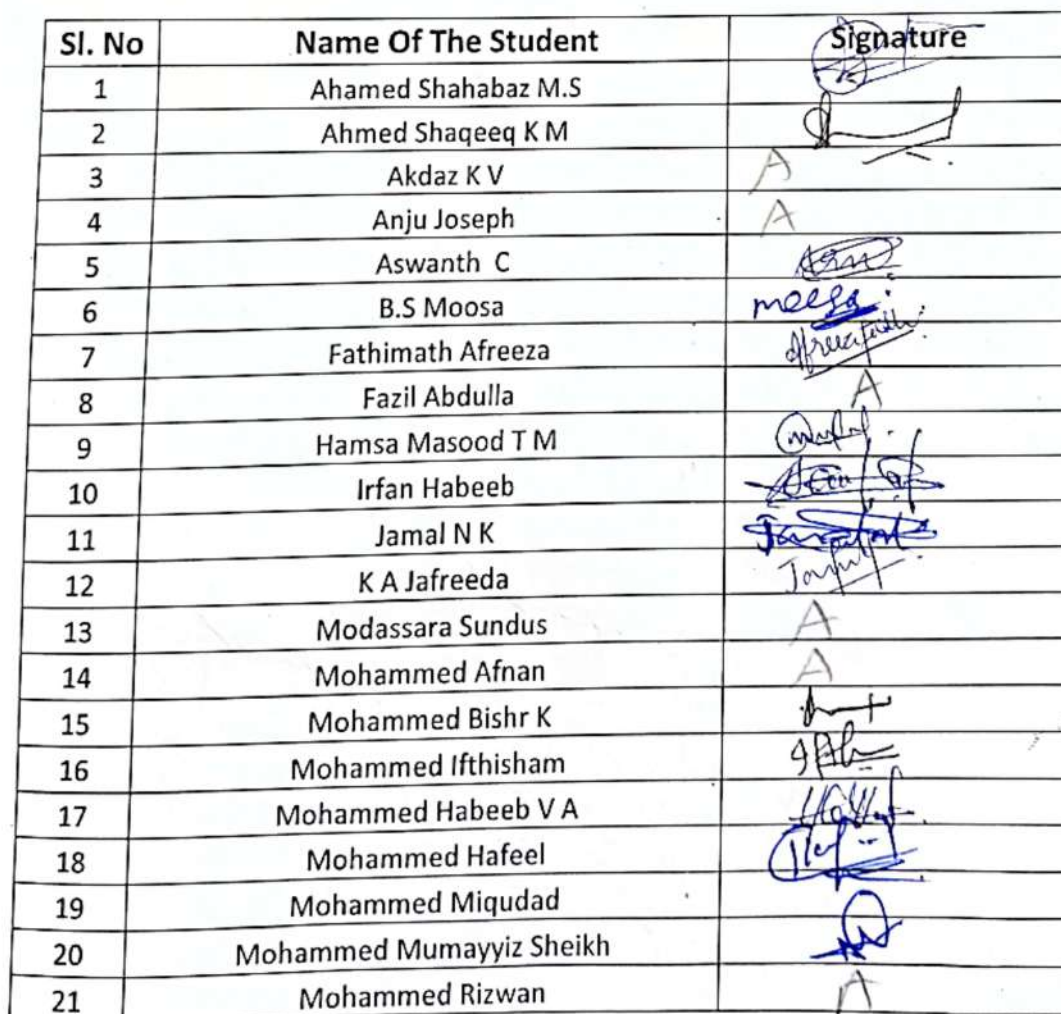 Sl. No Name Of The Student Signature
1 Ahamed Shahabaz M.S
2 Ahmed Shaqeeq K M
3 Akdaz K V A
4 Anju Joseph A
5 Aswanth C
6 B.S Moosa moosa
7 Fathimath Afreeza
8 Fazil Abdulla A
9 Hamsa Masood T M
10 Irfan Habeeb
11 Jamal N K
12 K A Jafreeda
13 Modassara Sundus A
14 Mohammed Afnan A
15 Mohammed Bishr K
16 Mohammed Ifthisham
17 Mohammed Habeeb V A
18 Mohammed Hafeel
19 Mohammed Miqudad
20 Mohammed Mumayyiz Sheikh
21 Mohammed Rizwan A